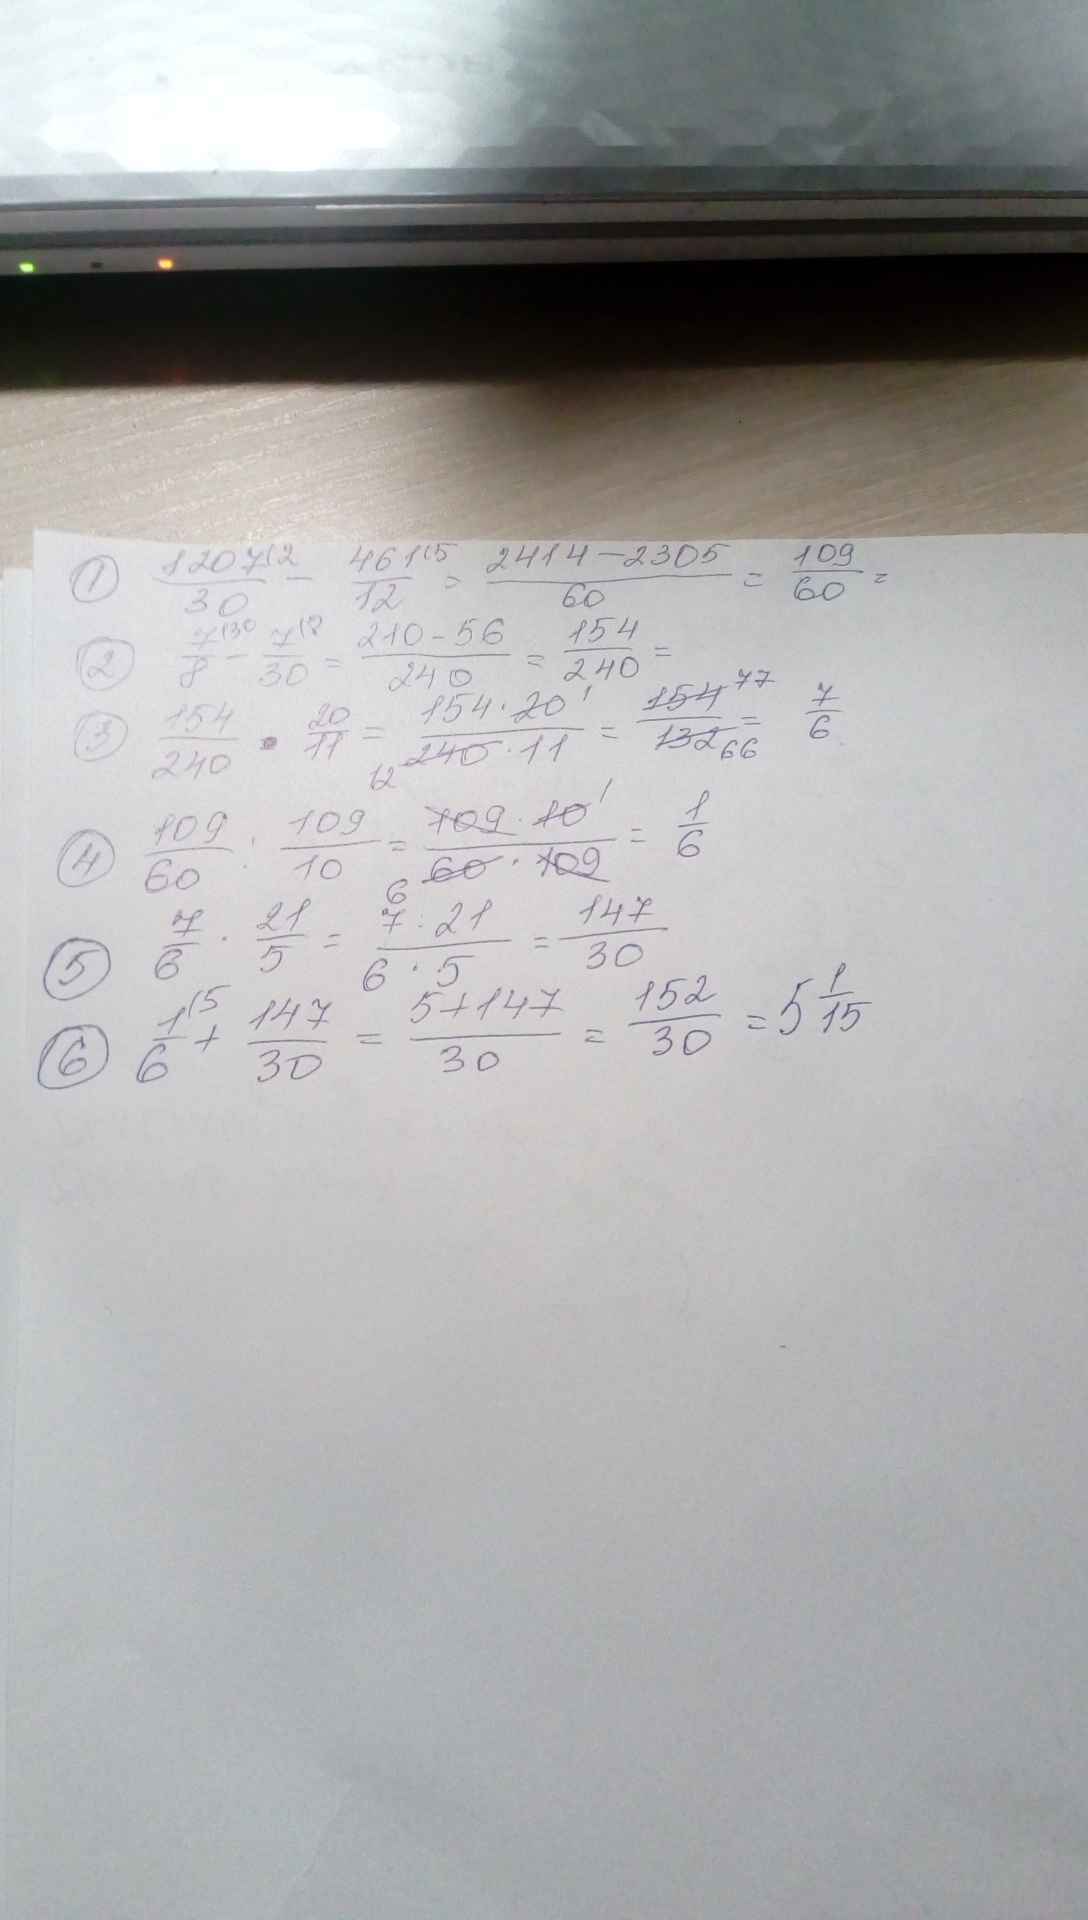 ① 1207(2/30 - 461(5/12 = 2414-2305/60 = 109/60 =
② 7(30/8 - 7(8/30 = 210-56/240 = 154/240 =
③ 154/240 · 20/11 = 154·20 1/12 240·11 = 154 77/132 66 = 7/6
④ 109/60 : 109/10 = 109·10 1/6 60·109 = 1/6
⑤ 7/6 · 21/5 = 7·21/6·5 = 147/30
⑥ 1(5/6 + 147/30 = 5+147/30 = 152/30 = 5 1/15